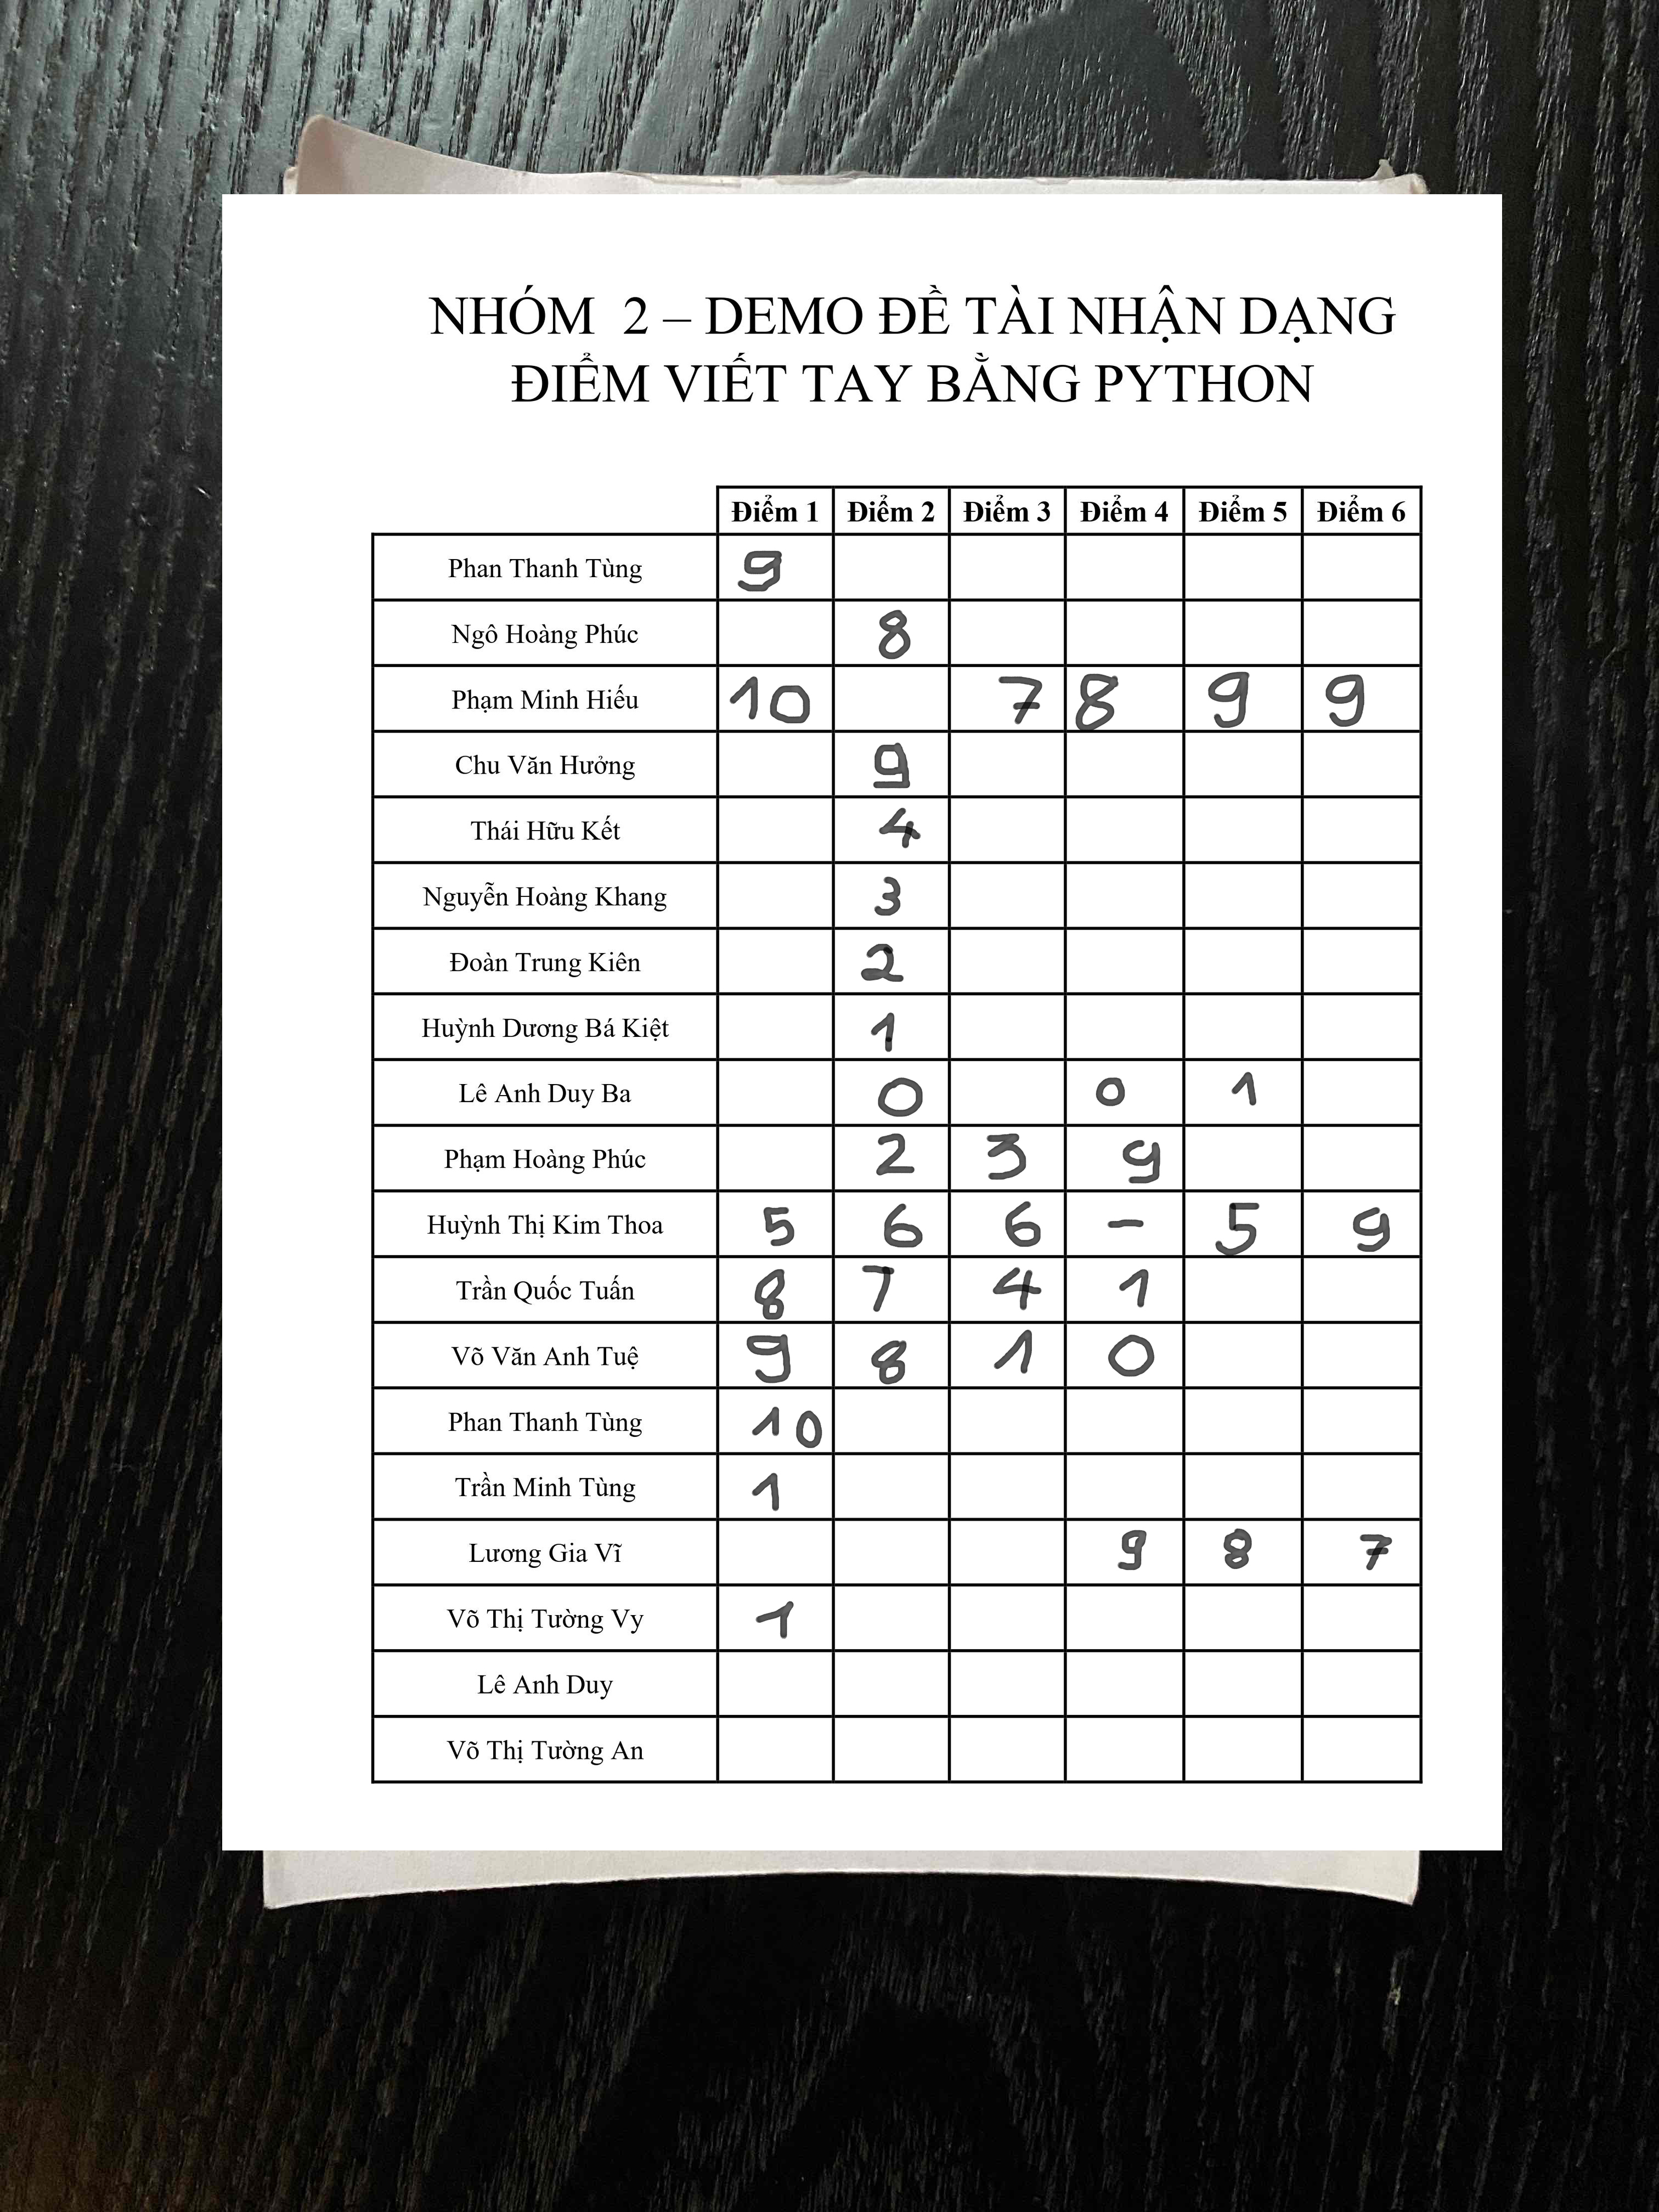 NHÓM 2 – DEMO ĐỀ TÀI NHẬN DẠNG
ĐIỂM VIẾT TAY BẰNG PYTHON
Điểm 1 Điểm 2 Điểm 3 Điểm 4 Điểm 5 Điểm 6
Phan Thanh Tùng 9
Ngô Hoàng Phúc 8
Phạm Minh Hiếu 10 7 8 9 9
Chu Văn Hưởng 9
Thái Hữu Kết 4
Nguyễn Hoàng Khang 3
Đoàn Trung Kiên 2
Huỳnh Dương Bá Kiệt 1
Lê Anh Duy Ba 0 0 1
Phạm Hoàng Phúc 2 3 9
Huỳnh Thị Kim Thoa 5 6 6 – 5 9
Trần Quốc Tuấn 8 7 4 1
Võ Văn Anh Tuệ 9 8 1 0
Phan Thanh Tùng 10
Trần Minh Tùng 1
Lương Gia Vĩ 9 8 7
Võ Thị Tường Vy 1
Lê Anh Duy
Võ Thị Tường An